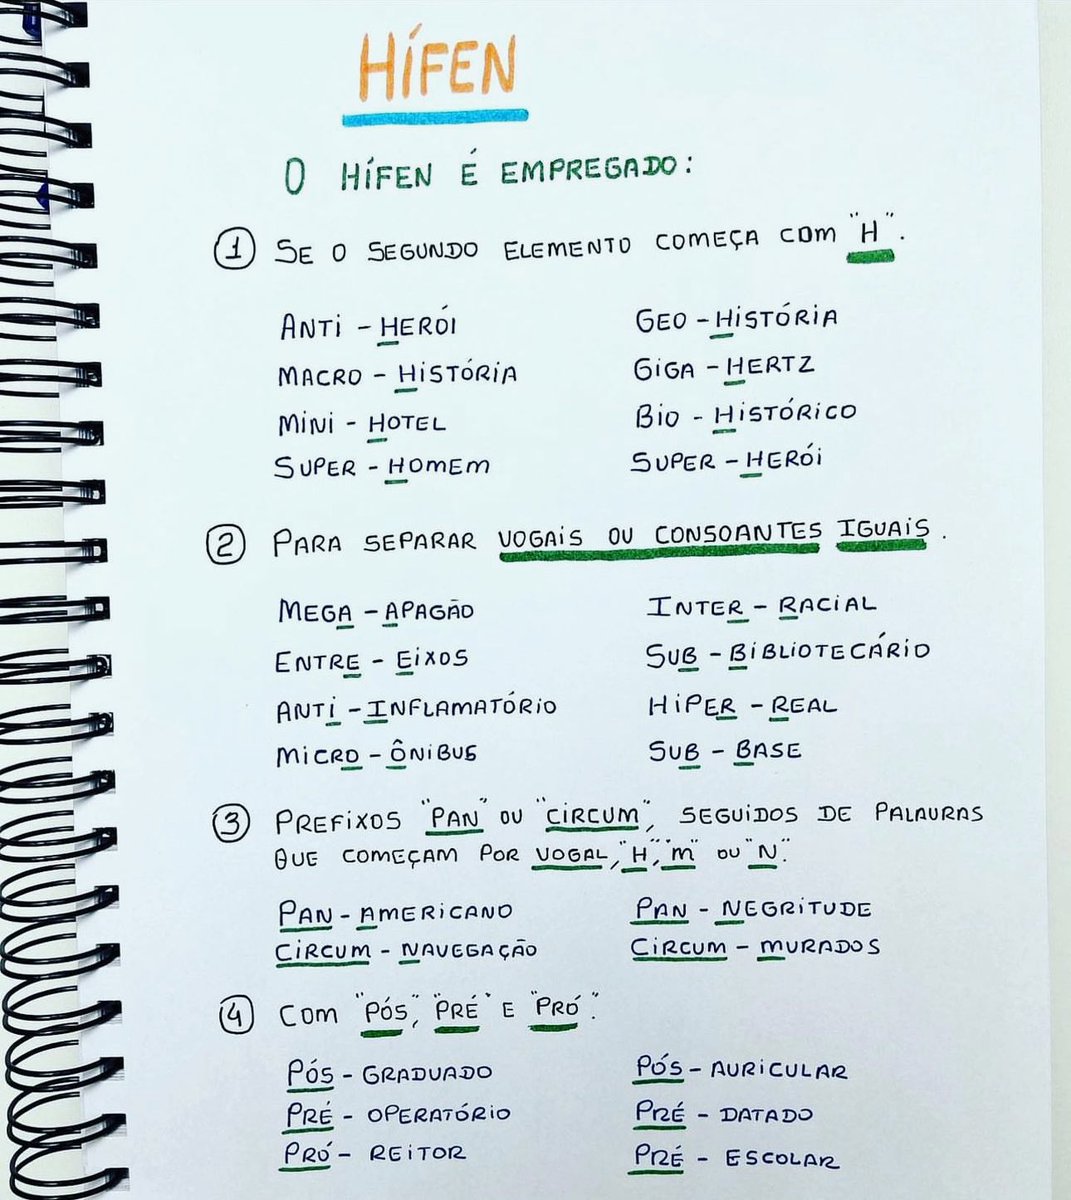 HÍFEN
O HÍFEN É EMPREGADO:
1 SE O SEGUNDO ELEMENTO COMEÇA COM "H".
ANTI - HERÓI
GEO - HISTÓRIA
MACRO - HISTÓRIA
GIGA - HERTZ
MINI - HOTEL
BIO - HISTÓRICO
SUPER - HOMEM
SUPER - HERÓI
2 PARA SEPARAR VOGAIS OU CONSOANTES IGUAIS.
MEGA - APAGÃO
INTER - RACIAL
ENTRE - EIXOS
SUB - BIBLIOTECÁRIO
ANTI - INFLAMATÓRIO
HIPER - REAL
MICRO - ÔNIBUS
SUB - BASE
3 PREFIXOS "PAN" OU "CIRCUM", SEGUIDOS DE PALAVRAS
QUE COMEÇAM POR VOGAL, "H", "M" OU "N".
PAN - AMERICANO
PAN - NEGRITUDE
CIRCUM - NAVEGAÇÃO
CIRCUM - MURADOS
4 COM "PÓS", "PRÉ" E "PRÓ".
PÓS - GRADUADO
PÓS - AURICULAR
PRÉ - OPERATÓRIO
PRÉ - DATADO
PRÓ - REITOR
PRÉ - ESCOLAR